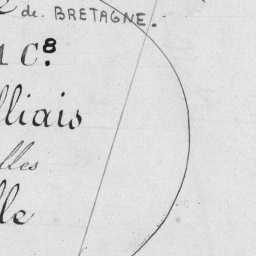 de. BRETAGNE.
1 C.8
lliais
lles
lle